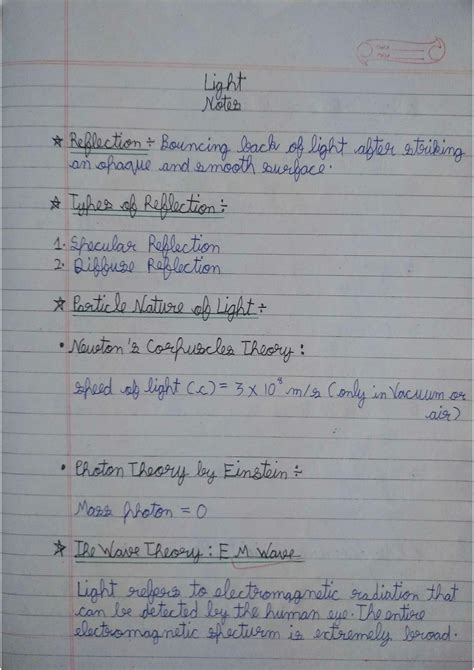 Light
Notes
★ Reflection ÷ Bouncing back of light after striking
an opaque and smooth surface.
★ Types of Reflection ÷
1. Specular Reflection
2. Diffuse Reflection
★ Particle Nature of Light ÷
• Newton's Corpuscles Theory :
speed of light (c) = 3 x 10⁸ m/s (only in Vacuum or
air)
• Photon Theory by Einstein ÷
Mass photon = 0
★ The Wave Theory : E M Wave
Light refers to electromagnetic radiation that
can be detected by the human eye. The entire
electromagnetic specturm is extremely broad.